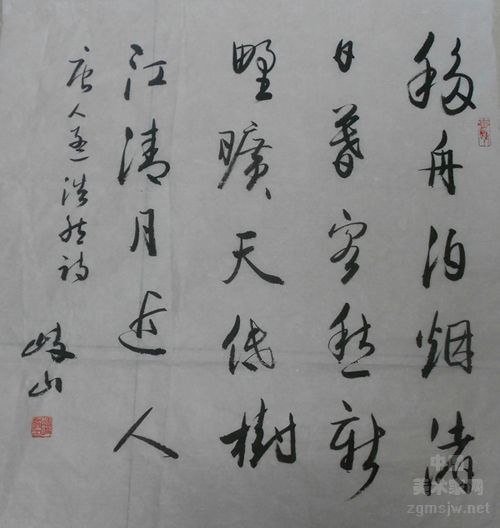 移舟泊烟渚
日暮客愁新
野旷天低树
江清月近人
唐人孟浩然诗
岐山
中国
美术家网
zgmsjw.net